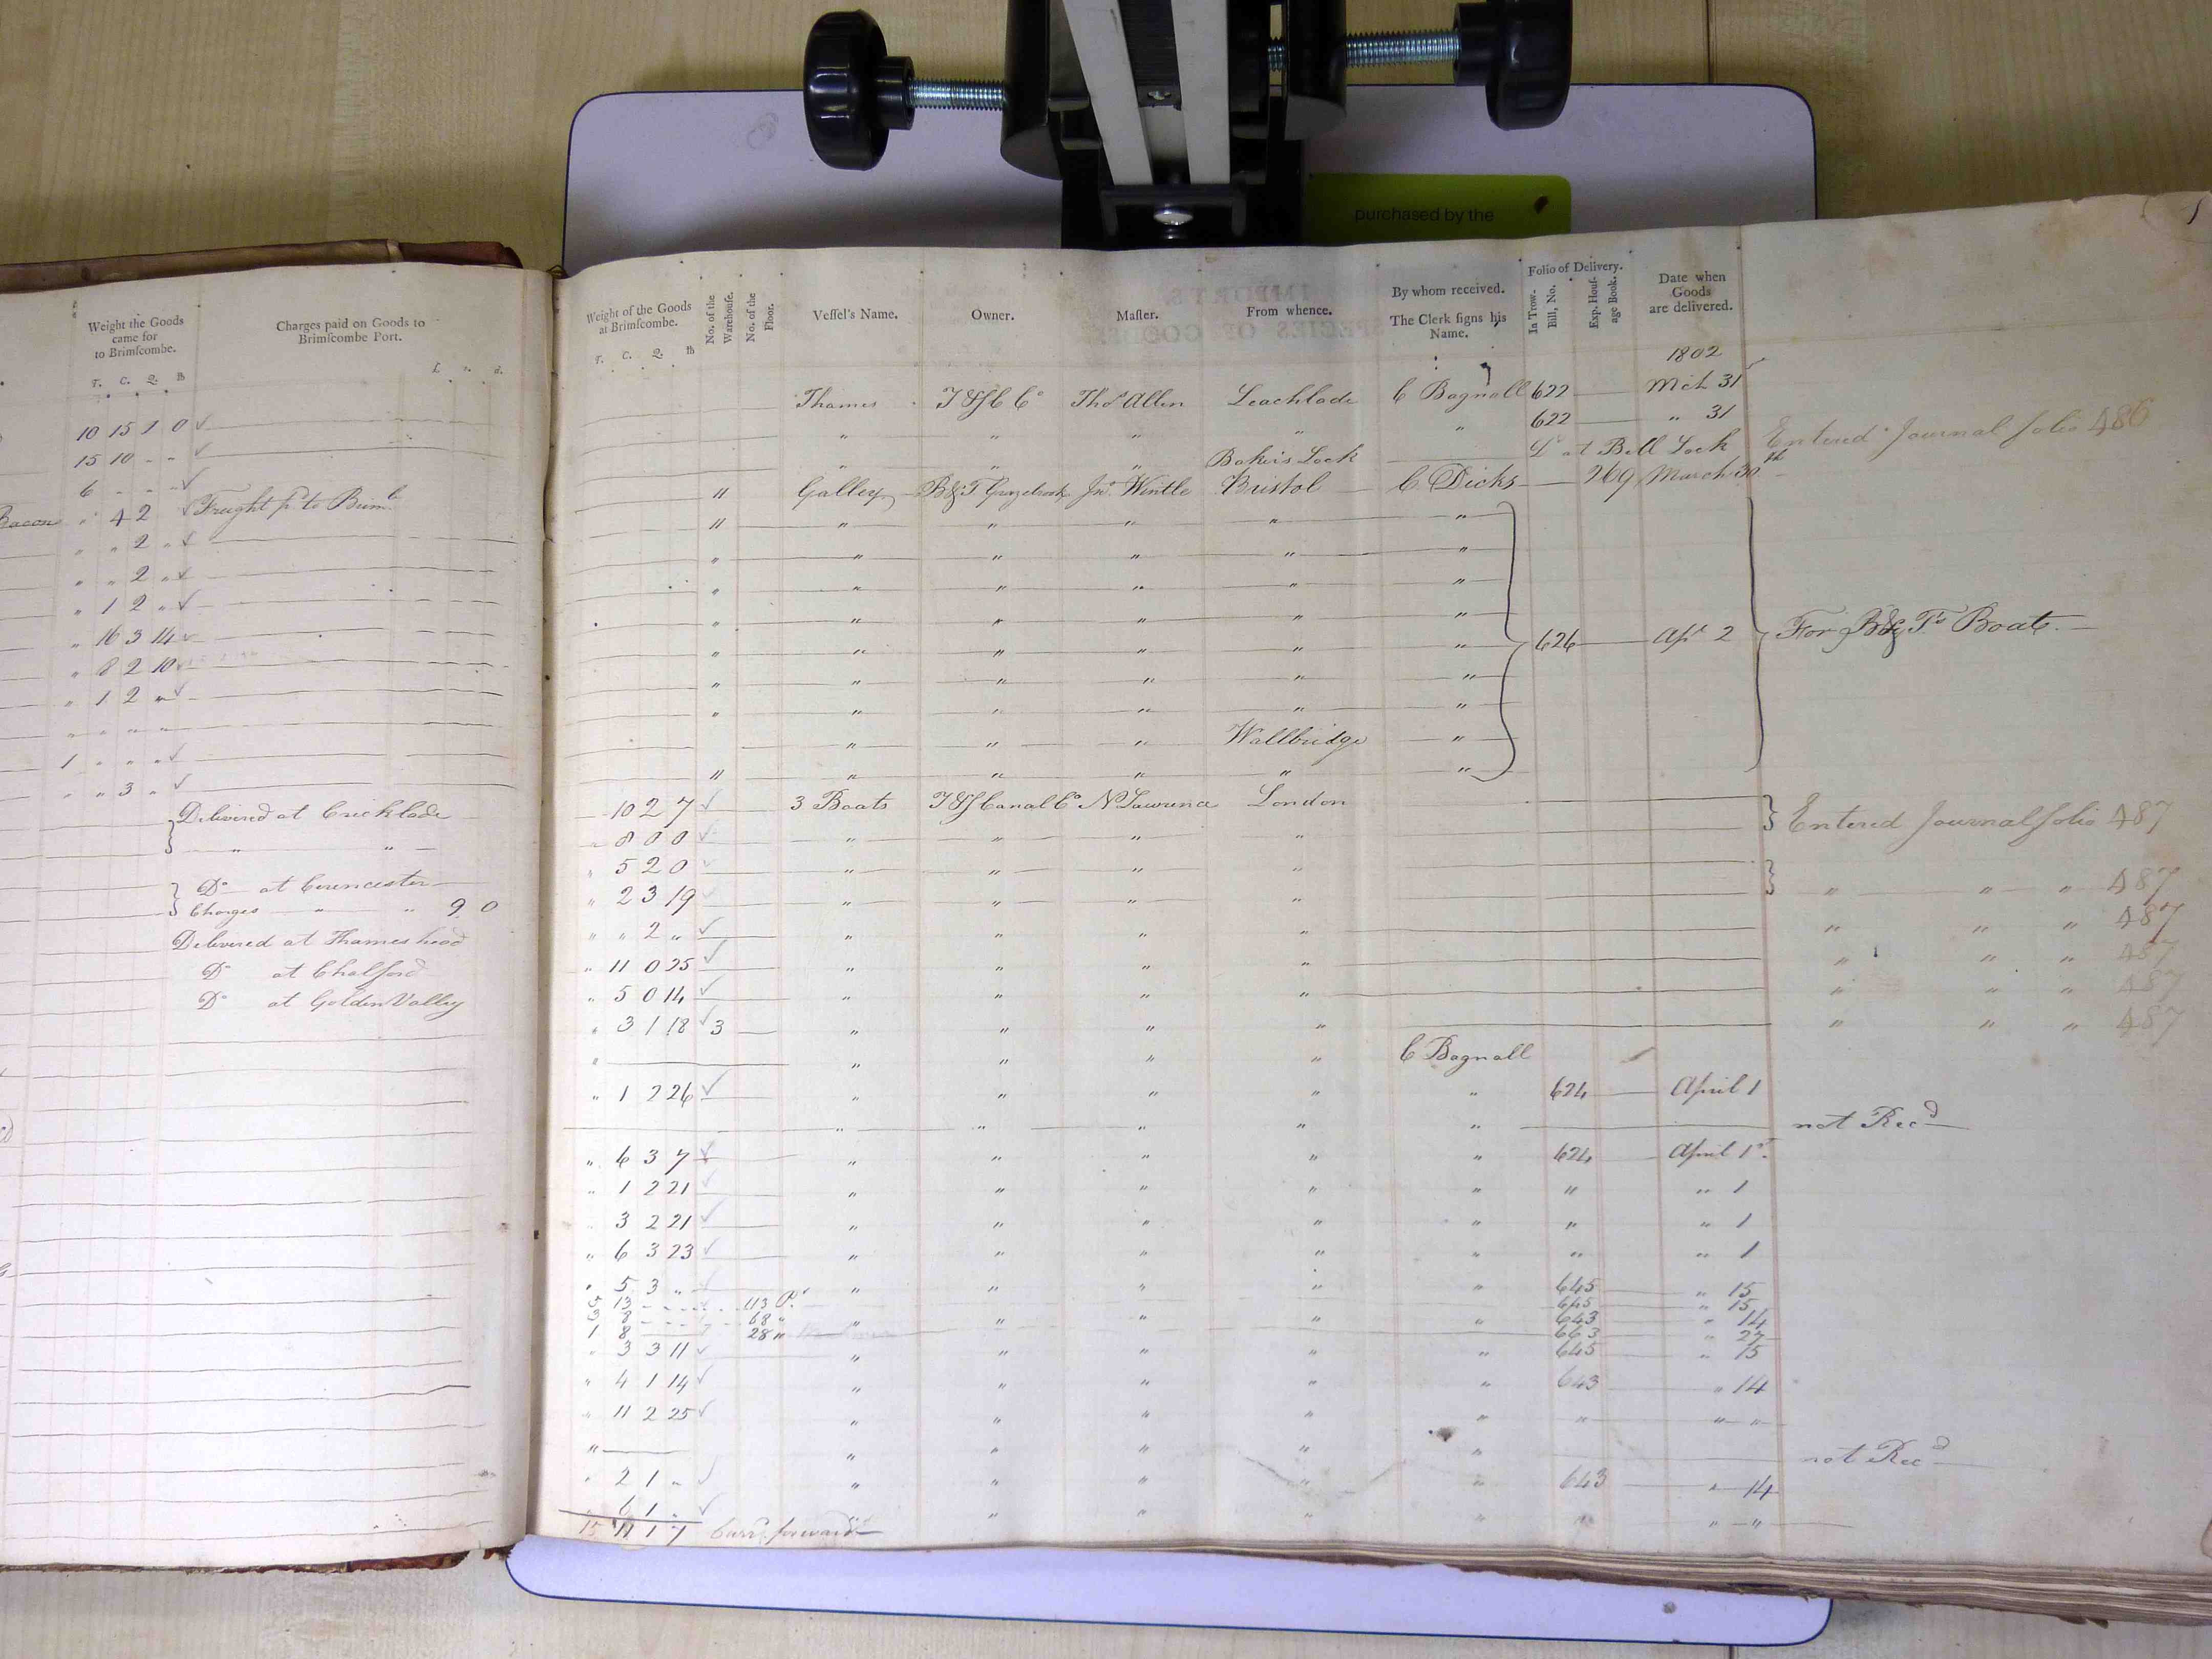 purchased by the
1
Weight the Goods came for to Brimſcombe.
T. C. Q. lb
Charges paid on Goods to Brimſcombe Port.
£ s. d.
10 15 1 0 ✓
15 10 - - ✓
6 - - - ✓
Bacon " 4 2 ✓ Freight pd. to Brimb.
" " 2 " ✓
" " 2 " ✓
" 1 2 " ✓
" 16 3 14 ✓
" 8 2 10 ✓
" 1 2 " ✓
" " " "
1 " " " ✓
" " 3 " ✓
Delivered at Cricklade
" "
Do at Cirencester
Charges " " 9 0
Delivered at Thames head
Do at Chalford
Do at Golden Valley
Weight of the Goods at Brimſcombe.
T. C. Q. lb
No. of the Warehouse.
No. of the Floor.
Veſſel's Name.
Owner.
Maſter.
From whence.
By whom received.
The Clerk ſigns his Name.
Folio of Delivery.
In Trow-Bill, No.
Exp. Houſ-age Book.
Date when Goods are delivered.
1802
Thames T&S C Co Thos Allen Leachlade C Bagnall 622 Mch 31
" " " " " 622 " 31
" " " Bakers Lock Do at Bell Lock Entered Journal folio 486
" Galley B&T Grazebrook Jno Wintle Bristol C Dicks 269 March 30th
" " " " " "
" " " " " "
" " " " " "
" " " " " "
" " " " " " 626 Apl 2 For B&Ts Boats
" " " " " "
" " " " " "
" " " Wallbridge "
" " " " " "
10 2 7 ✓ 3 Boats T&S Canal Co N Lawrence London
" 8 0 0 ✓ " " " " Entered Journal folio 487
" 5 2 0 ✓ " " " "
" 2 3 19 ✓ " " " " " " " 487
" " 2 " ✓ " " " " " " " 487
" 11 0 25 ✓ " " " " " " " 487
" 5 0 14 ✓ " " " " " " " 487
" 3 1 18 ✓ 3 " " " " " " " 487
" " " " " C Bagnall
" 1 2 26 ✓ " " " " " 624 April 1
" " " " " not Recd
" 6 3 7 ✓ " " " " " 624 April 1st
" 1 2 21 ✓ " " " " " " " 1
" 3 2 21 ✓ " " " " " " " 1
" 6 3 23 ✓ " " " " " " " 1
" 5 3 " ✓ " " " " " 645 " 15
5 13 - - 113 Ps 645 " 15
3 8 - - 68 " " " " " " 643 " 14
1 8 28 " 663 " 27
" 3 3 11 ✓ " " " " " 645 " 15
" 4 1 14 ✓ " " " " " 643 " 14
" 11 2 25 ✓ " " " " " " " "
" " " " " " not Recd
" 2 1 " ✓ " " " " " 643 " 14
6 1 " ✓ " " " " " " " "
15 11 1 7 Carrd forward